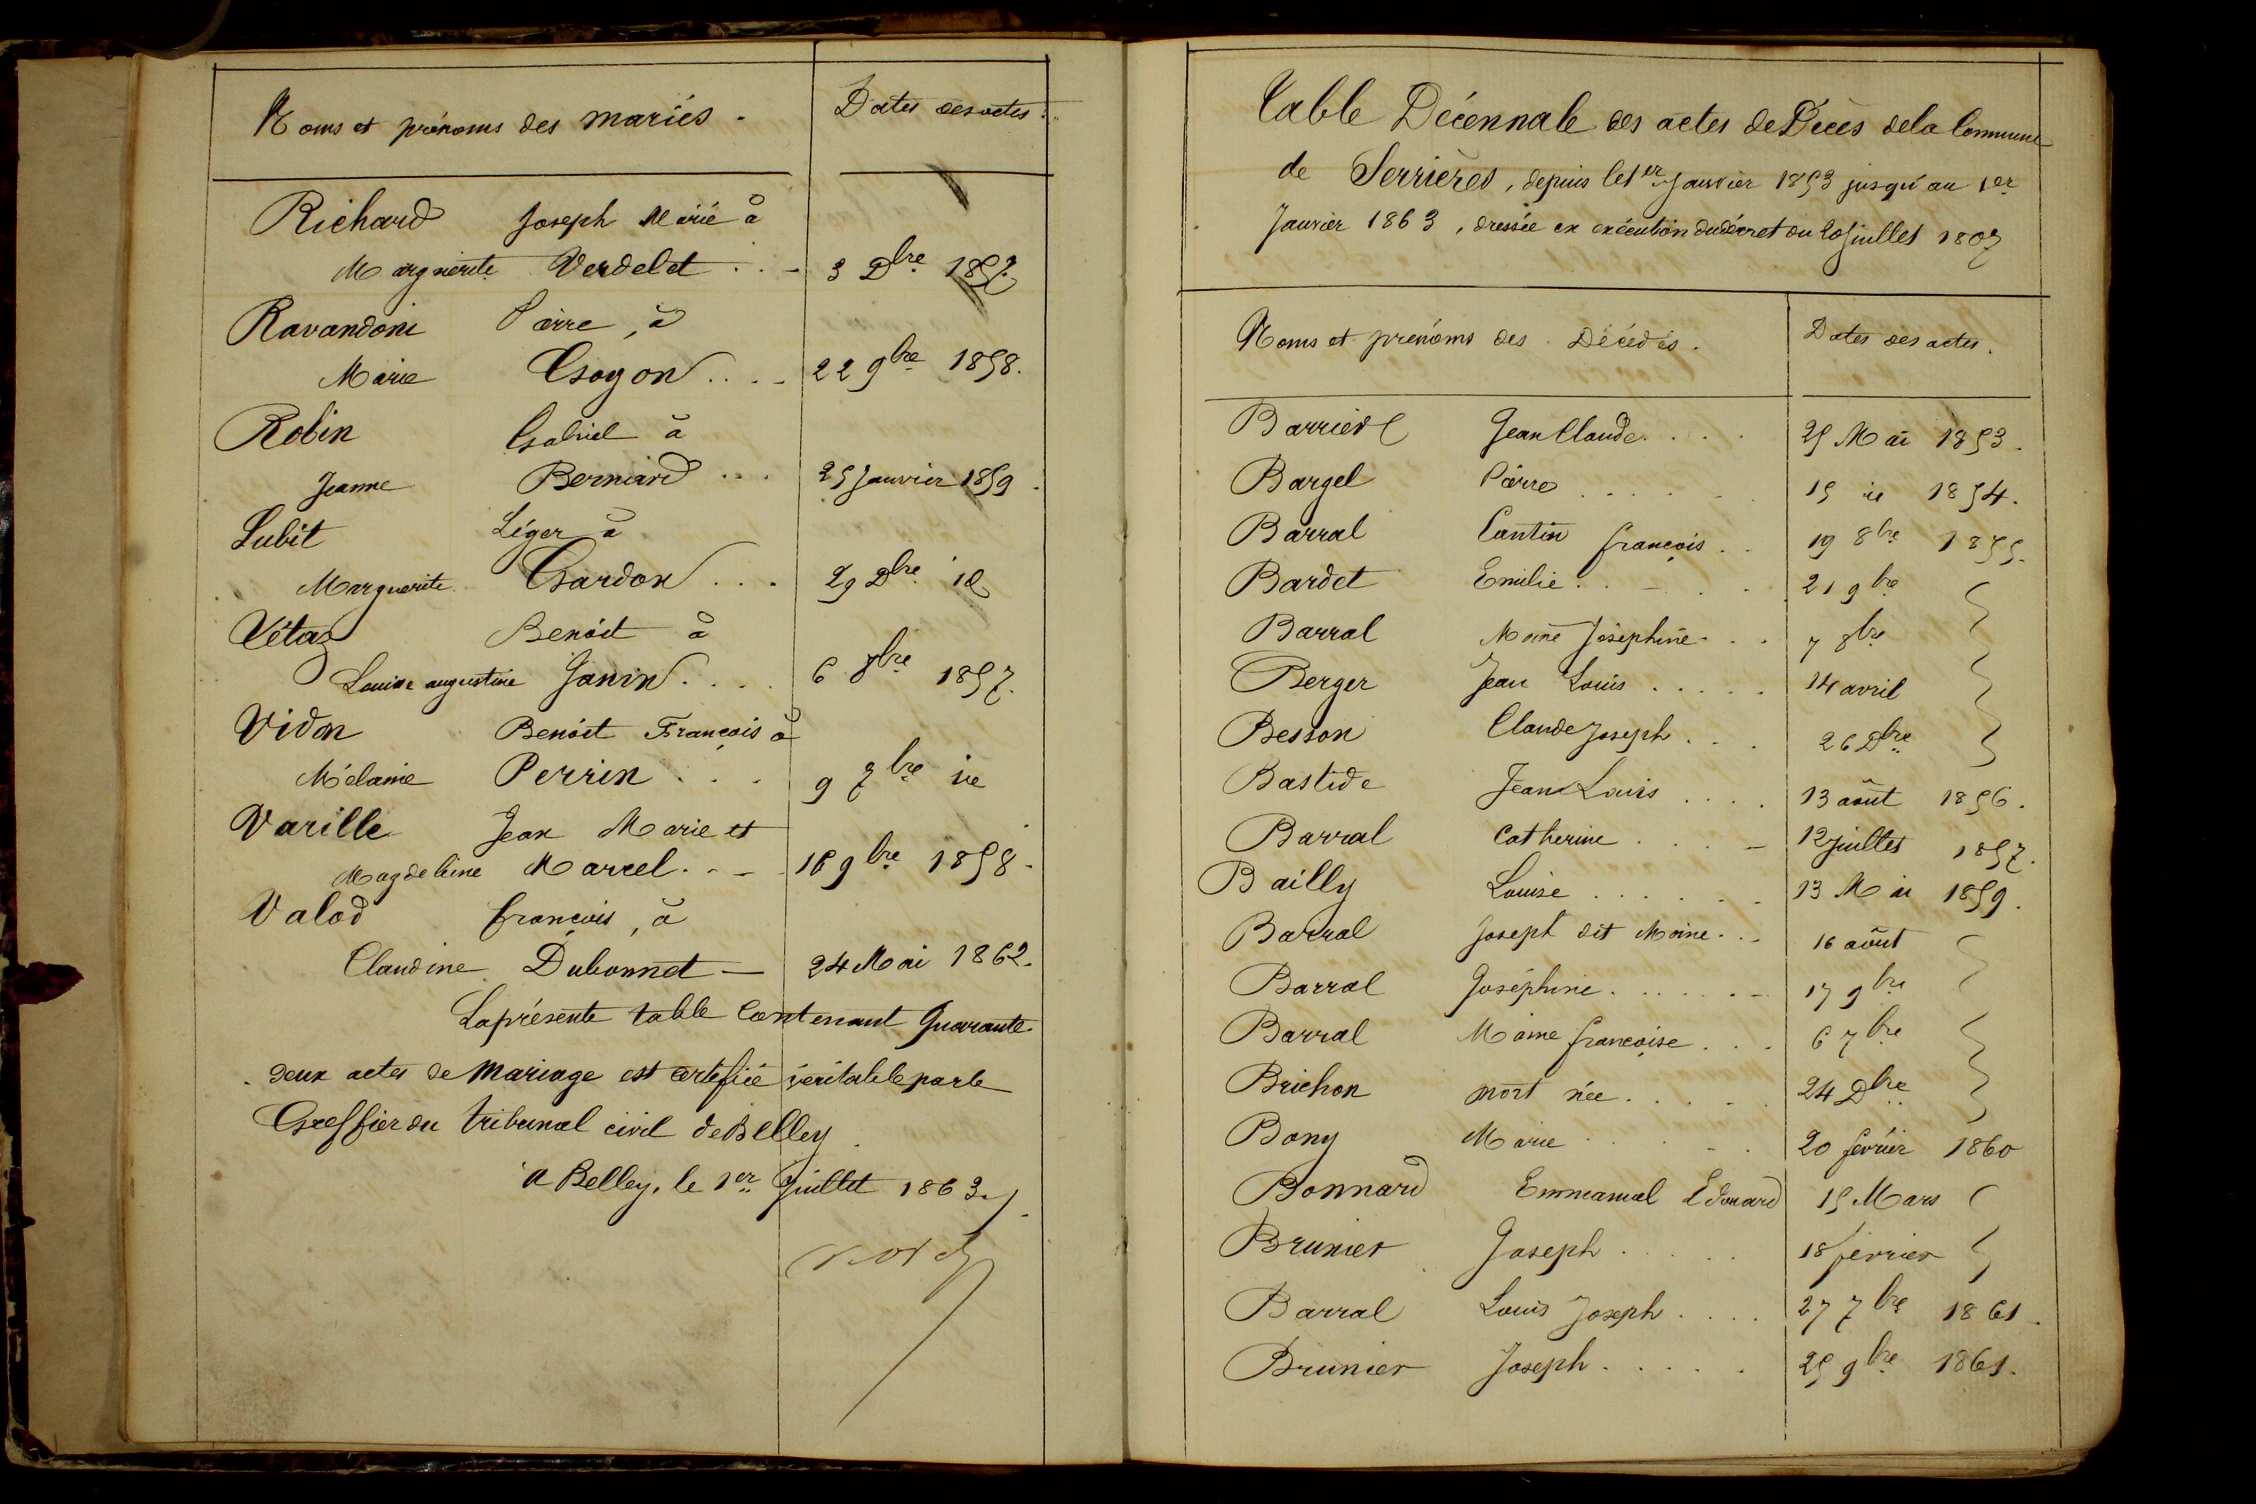 Noms et prénoms des mariés.
Dates des actes.
Richard Joseph Marie à
Marguerite Verdelet . . - 3 Dbre 1857.
Ravandoni Pierre, à
Marie Goyon . . . . 22 9bre 1858.
Robin Gabriel à
Jeanne Bernard . . . 25 Janvier 1859.
Subit Léger à
Marguerite Gardon . . . 29 Dbre id
Vétaz Benoit à
Louise augustine Janin . . . . 6 8bre 1857.
Vidon Benoit François à
Mélanie Perrin . . . 9 7bre id
Varille Jean Marie et
Magdeleine Marcel . . - 16 9bre 1858.
Valod françois, à
Claudine Dubonnet — 24 Mai 1862.
La présente table Contenant Quarante
deux actes de Mariage est certifié véritable par le
Greffier du tribunal civil de Belley.
a Belley, le 1er Juillet 1863.
Table Décennale des actes de Décès de la Commune
de Serrières, depuis le 1er Janvier 1853 jusqu'au 1er
Janvier 1863, dressée en exécution du décret du 20 Juillet 1807
Noms et prénoms des Décédés.
Dates des actes.
Barriere Jean Claude . . . . 25 Mai 1853.
Bargel Pierre . . . . . . 15 id 1854.
Barral Cantin françois . . 19 8bre 1855.
Bardet Emilie . . - . . . 21 9bre
Barral Moine Joséphine . . . 7 8bre
Berger Jean Louis . . . . . 14 avril
Besson Claude Joseph . . . 26 Dbre
Bastide Jean Louis . . . . 13 août 1856.
Barral Catherine . . . - 12 Juillet 1857.
Bailly Louise . . . . . . 13 Mai 1859.
Barral Joseph dit Moine . . . 16 août
Barral Joséphine . . . . . . 17 9bre
Barral Moine françoise . . . 6 7bre
Brichon mort née . . . . . 24 Dbre
Bony Marie . . . . . 20 février 1860
Bonnard Emmanuel Edouard 15 Mars
Brunier Joseph . . . . . 18 février
Barral Louis Joseph . . . . 27 7bre 1861.
Brunier Joseph . . . . . 25 9bre 1861.